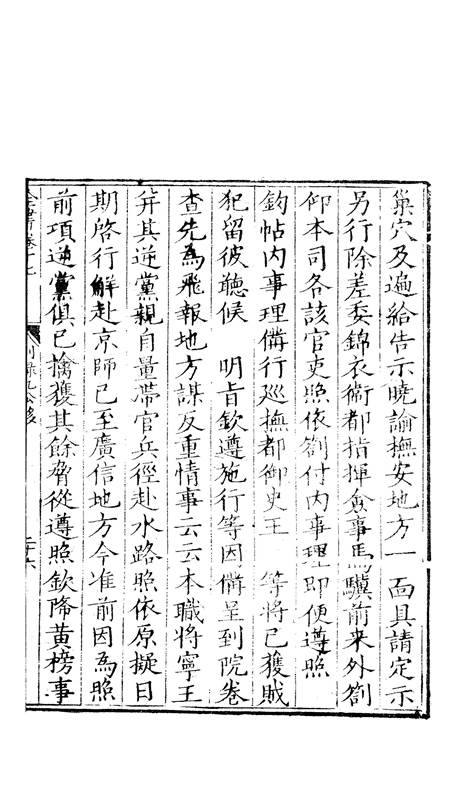 巢穴及遍給告示曉諭撫安地方一面具請定示
另行除差委錦衣衛都指揮僉事馬驥前来外劄
仰本司各該官吏照依劄付内事理即便遵照
鈞帖内事理備行廵撫都御史王　等將已獲賊
犯留彼聽候　明旨欽遵施行等因備呈到院卷
查先為飛報地方謀反重情事云云本職將寧王
并其逆黨親自量帶官兵徑赴水路照依原擬日
期啓行解赴京師已至廣信地方今准前因為照
前項逆黨俱已擒獲其餘脅從遵照欽降黃榜事
全書卷十七
别録九公移
二十六